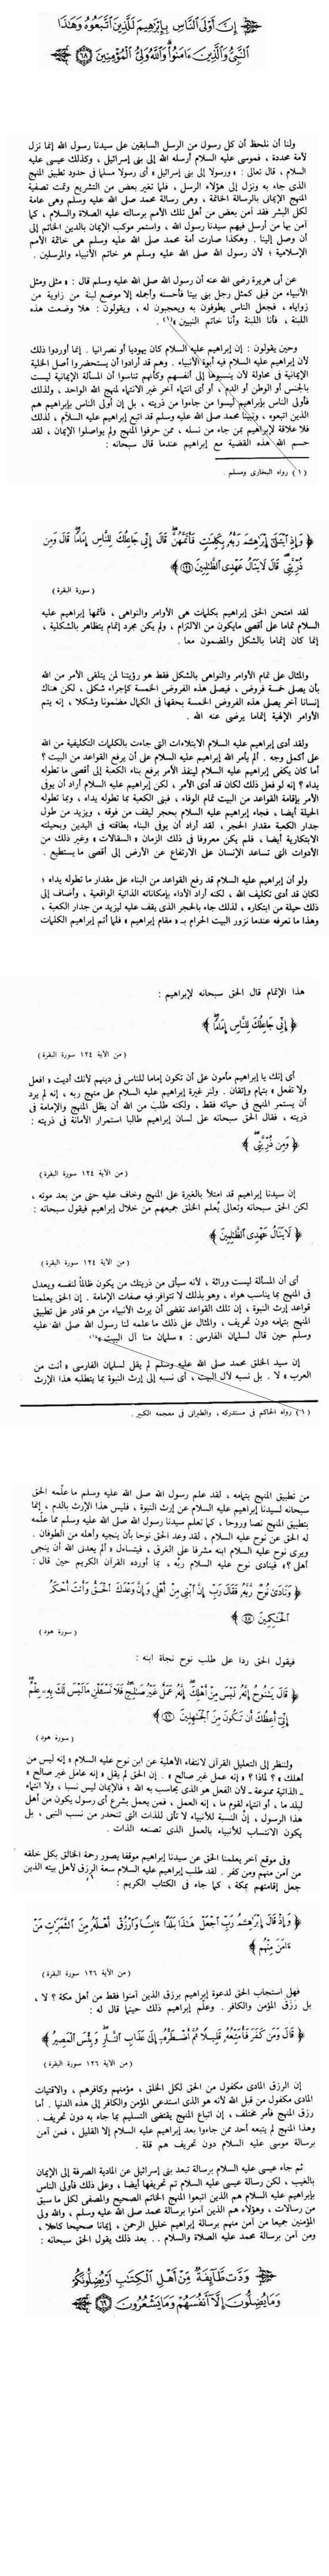 إِنَّ أَوْلَى النَّاسِ بِإِبْرَاهِيمَ لَلَّذِينَ اتَّبَعُوهُ وَهَٰذَا
النَّبِيُّ وَالَّذِينَ ءَامَنُوا وَاللَّهُ وَلِيُّ الْمُؤْمِنِينَ ٦٨
ولنا أن نلحظ أن كل رسول من الرسل السابقين على سيدنا رسول الله إنما نزل
لأمة محددة ، فموسى عليه السلام أرسله الله إلى بنى إسرائيل ، وكذلك عيسى عليه
السلام ، قال تعالى : « ورسولا إلى بنى إسرائيل » أى رسولا مسلما فى حدود تطبيق المنهج
الذى جاء به ونزل إلى هؤلاء الرسل ، فلما تغير بعض من التشريع وتمت تصفية
المنهج الإيمانى بالرسالة الخاتمة ، وهى رسالة محمد صلى الله عليه وسلم وهى عامة
لكل البشر فقد آمن بعض من أهل تلك الأمم برسالته عليه الصلاة والسلام ، كما
آمن بها من أرسل فيهم سيدنا رسول الله ، واستمر موكب الإيمان بالدين الخاتم إلى
أن وصل إلينا . وهكذا صارت أمة محمد صلى الله عليه وسلم هى خاتمة الأمم
الإسلامية ؛ لأن رسول الله صلى الله عليه وسلم هو خاتم الأنبياء والمرسلين .
عن أبى هريرة رضى الله عنه أن رسول الله صلى الله عليه وسلم قال : « مثلى ومثل
الأنبياء من قبلى كمثل رجل بنى بيتا فأحسنه وأجمله إلا موضع لبنة من زاوية من
زواياه ، فجعل الناس يطوفون به ويعجبون له ، ويقولون : هلا وضعت هذه
اللبنة ، فأنا اللبنة وأنا خاتم النبيين »(١) .
وحين يقولون : إن إبراهيم عليه السلام كان يهوديا أو نصرانيا . إنما أوردوا ذلك
لأن إبراهيم عليه السلام فيه أبوة الأنبياء . وهم قد أرادوا أن يستحضروا أصل الخلية
الإيمانية فى محاولة لأن ينسبوها إلى أنفسهم وكأنهم تناسوا أن المسألة الإيمانية ليست
بالجنس أو الوطن أو الدم ، أو أى انتماء آخر غير الانتماء لمنهج الله الواحد ، ولذلك
فأولى الناس بإبراهيم ليسوا من جاءوا من ذريته ، بل إن أولى الناس بإبراهيم هم
الذين اتبعوه ، ونبينا محمد صلى الله عليه وسلم قد اتبع إبراهيم عليه السلام ، لذلك
فلا علاقة لإبراهيم بمن جاء من نسله ، ممن حرفوا المنهج ولم يواصلوا الإيمان ، لقد
حسم الله هذه القضية مع إبراهيم عندما قال سبحانه :
(١) رواه البخارى ومسلم .
﴿ وَإِذِ ابْتَلَىٰ إِبْرَاهِيمَ رَبُّهُ بِكَلِمَاتٍ فَأَتَمَّهُنَّ قَالَ إِنِّي جَاعِلُكَ لِلنَّاسِ إِمَامًا قَالَ وَمِن
ذُرِّيَّتِي قَالَ لَا يَنَالُ عَهْدِي الظَّالِمِينَ ١٢٤ ﴾
( سورة البقرة )
لقد امتحن الحق إبراهيم بكلمات هى الأوامر والنواهى ، فأتمها إبراهيم عليه
السلام تماما على أقصى مايكون من الالتزام ، ولم يكن مجرد إتمام يتظاهر بالشكلية ،
إنما كان إتماما بالشكل والمضمون معا .
والمثال على تمام الأوامر والنواهى بالشكل فقط هو رؤيتنا لمن يتلقى الأمر من الله
بأن يصلى خمسة فروض ، فيصلى هذه الفروض الخمسة كإجراء شكلى ، لكن هناك
إنسانا آخر يصلى هذه الفروض الخمسة بحقها فى الكمال مضمونا وشكلا ، إنه يتم
الأوامر الإلهية إتماما يرضى عنه الله .
ولقد أدى إبراهيم عليه السلام الابتلاءات التى جاءت بالكلمات التكليفية من الله
على أكمل وجه . ألم يأمر الله إبراهيم عليه السلام على أن يرفع القواعد من البيت ؟
أما كان يكفى إبراهيم عليه السلام لينفذ الأمر برفع بناء الكعبة إلى أقصى ما تطوله
يداه ؟ إنه لو فعل ذلك لكان قد أدى الأمر ، لكن إبراهيم عليه السلام أراد أن يوفى
الأمر بإقامة القواعد من البيت تمام الوفاء ، فبنى الكعبة بما تطوله يداه ، وبما تطوله
الحيلة أيضا ، فجاء إبراهيم عليه السلام بحجر ليقف من فوقه ، ويزيد من طول
جدار الكعبة مقدار الحجر ، لقد أراد أن يوفى البناء بطاقته فى اليدين وبحيلته
الابتكارية أيضا ، فلم يكن معروفا فى ذلك الزمان « السقالات » وغير ذلك من
الأدوات التى تساعد الإنسان على الارتفاع عن الأرض إلى أقصى ما يستطيع .
ولو أن إبراهيم عليه السلام قد رفع القواعد من البناء على مقدار ما تطوله يداه ؛
لكان قد أدى تكليف الله ، لكنه أراد الأداء بإمكاناته الذاتية الواقعية ، وأضاف إلى
ذلك حيلة من ابتكاره ، لذلك جاء بالحجر الذى يقف عليه ليزيد من جدار الكعبة ،
وهذا ما نعرفه عندما نزور البيت الحرام بـ « مقام إبراهيم » فلما أتم إبراهيم الكلمات
هذا الإتمام قال الحق سبحانه لإبراهيم :
﴿ إِنِّي جَاعِلُكَ لِلنَّاسِ إِمَامًا ﴾
( من الآية ١٢٤ سورة البقرة )
أى إنك يا إبراهيم مأمون على أن تكون إماما للناس فى دينهم لأنك أديت « افعل
ولا تفعل » بتمام وإتقان . ولنر غيرة إبراهيم عليه السلام على منهج ربه ، إنه لم يرد
أن يستمر المنهج فى حياته فقط ، ولكنه طلب من الله أن يظل المنهج والإمامة فى
ذريته ، فقال الحق سبحانه على لسان إبراهيم طالبا استمرار الأمانة فى ذريته :
﴿ وَمِن ذُرِّيَّتِي ﴾
( من الآية ١٢٤ سورة البقرة )
إن سيدنا إبراهيم قد امتلأ بالغيرة على المنهج وخاف عليه حتى من بعد موته ،
لكن الحق سبحانه وتعالى يُعلم الخلق جميعهم من خلال إبراهيم فيقول سبحانه :
﴿ لَا يَنَالُ عَهْدِي الظَّالِمِينَ ﴾
( من الآية ١٢٤ سورة البقرة )
أى أن المسألة ليست وراثة ، لأنه سيأتى من ذريتك من يكون ظالماً لنفسه ويعدل
فى المنهج بما يناسب هواه ، وهو بذلك لا تتوافر فيه صفات الإمامة . إن الحق يعلمنا
قواعد إرث النبوة ، إن تلك القواعد تقضى أن يرث الأنبياء من هو قادر على تطبيق
المنهج بتمامه دون تحريف ، والمثال على ذلك ما علمه لنا رسول الله صلى الله عليه
وسلم حين قال لسلمان الفارسى : « سلمان منا آل البيت »(١)
إن سيد الخلق محمد صلى الله عليه وسلم لم يقل لسلمان الفارسى « أنت من
العرب » لا . بل نسبه لآل البيت ، أى نسبه إلى إرث النبوة بما يتطلبه هذا الإرث
(١) رواه الحاكم فى مستدركه ، والطبرانى فى معجمه الكبير .
من تطبيق المنهج بتمامه ، لقد علم رسول الله صلى الله عليه وسلم ما علَّمه الحق
سبحانه لسيدنا إبراهيم عليه السلام عن إرث النبوة ، فليس هذا الإرث بالدم ، إنما
بتطبيق المنهج نصا وروحا ، كما تعلم سيدنا رسول الله صلى الله عليه وسلم مما علَّمه
له الحق عن نوح عليه السلام ، لقد وعد الحق نوحا بأن ينجيه وأهله من الطوفان .
ويرى نوح عليه السلام ابنه مشرفا على الغرق ، فيتساءل « ألم يعدنى الله أن ينجى
أهلى ؟» فينادى نوح عليه السلام ربَّه ، بما أورده القرآن الكريم حين قال :
﴿ وَنَادَىٰ نُوحٌ رَّبَّهُ فَقَالَ رَبِّ إِنَّ ابْنِي مِنْ أَهْلِي وَإِنَّ وَعْدَكَ الْحَقُّ وَأَنتَ أَحْكَمُ
الْحَاكِمِينَ ٤٥ ﴾
( سورة هود )
فيقول الحق ردا على طلب نوح نجاة ابنه :
﴿ قَالَ يَا نُوحُ إِنَّهُ لَيْسَ مِنْ أَهْلِكَ إِنَّهُ عَمَلٌ غَيْرُ صَالِحٍ فَلَا تَسْأَلْنِ مَا لَيْسَ لَكَ بِهِ عِلْمٌ
إِنِّي أَعِظُكَ أَن تَكُونَ مِنَ الْجَاهِلِينَ ٤٦ ﴾
( سورة هود )
ولننظر إلى التعليل القرآنى لانتفاء الأهلية عن ابن نوح عليه السلام « إنه ليس من
أهلك » ؟ لماذا ؟ « إنه عمل غير صالح » . إن الحق لم يقل « إنه عامل غير صالح »
ـ الذاتية ممنوعة ـ لأن الفعل هو الذى يحاسب به الله ؛ فالإيمان ليس نسبا ، ولا انتماء
لبلد ما ، أو انتماء لقوم ما ، إنه العمل ، فمن يعمل بشرع أى رسول يكون من أهل
هذا الرسول ، إن النسبة للأنبياء لا تأتى للذات التى تنحدر من نسب النبى ، بل
يكون الانتساب للأنبياء بالعمل الذى تصنعه الذات .
وفى موقع آخر يعلمنا الحق عن سيدنا إبراهيم موقفا يصور رحمة الخالق بكل خلقه
من آمن منهم ومن كفر . لقد طلب إبراهيم عليه السلام سعة الرزق لأهل بيته الذين
جعل إقامتهم بمكة ، كما جاء فى الكتاب الكريم :
﴿ وَإِذْ قَالَ إِبْرَاهِيمُ رَبِّ اجْعَلْ هَٰذَا بَلَدًا ءَامِنًا وَارْزُقْ أَهْلَهُ مِنَ الثَّمَرَاتِ مَنْ
ءَامَنَ مِنْهُم ﴾
( من الآية ١٢٦ سورة البقرة )
فهل استجاب الحق لدعوة إبراهيم برزق الذين آمنوا فقط من أهل مكة ؟ لا ،
بل رزق المؤمن والكافر . وعلَّم إبراهيم ذلك حينما قال له :
﴿ قَالَ وَمَن كَفَرَ فَأُمَتِّعُهُ قَلِيلًا ثُمَّ أَضْطَرُّهُ إِلَىٰ عَذَابِ النَّارِ وَبِئْسَ الْمَصِيرُ ﴾
( من الآية ١٢٦ سورة البقرة )
إن الرزق المادى مكفول من الحق لكل الخلق ، مؤمنهم وكافرهم ، والاقتيات
المادى مكفول من قبل الله لأنه هو الذى استدعى المؤمن والكافر إلى هذه الدنيا . أما
رزق المنهج فأمر مختلف ، إن اتباع المنهج يقتضى التسليم بما جاء به دون تحريف .
وهذا المنهج لم يتبعه أحد ممن جاءوا بعد إبراهيم عليه السلام إلا القليل ، فمن آمن
برسالة موسى عليه السلام دون تحريف هم قلة .
ثم جاء عيسى عليه السلام برسالة تبعد بنى إسرائيل عن المادية الصرفة إلى الإيمان
بالغيب ، لكن رسالة عيسى عليه السلام تم تحريفها أيضا ، وعلى ذلك فأولى الناس
بإبراهيم عليه السلام هم الذين اتبعوا المنهج الخاتم الصحيح والمصفى لكل ما سبق
من رسالات ، وهؤلاء هم الذين آمنوا برسالة محمد صلى الله عليه وسلم ، والله ولى
المؤمنين جميعا من آمن منهم برسالة إبراهيم خليل الرحمن ، إيمانا صحيحا كاملا ،
ومن آمن برسالة محمد عليه الصلاة والسلام . . بعد ذلك يقول الحق سبحانه :
وَدَّت طَّائِفَةٌ مِّنْ أَهْلِ الْكِتَابِ لَوْ يُضِلُّونَكُمْ
وَمَا يُضِلُّونَ إِلَّا أَنفُسَهُمْ وَمَا يَشْعُرُونَ ٦٩